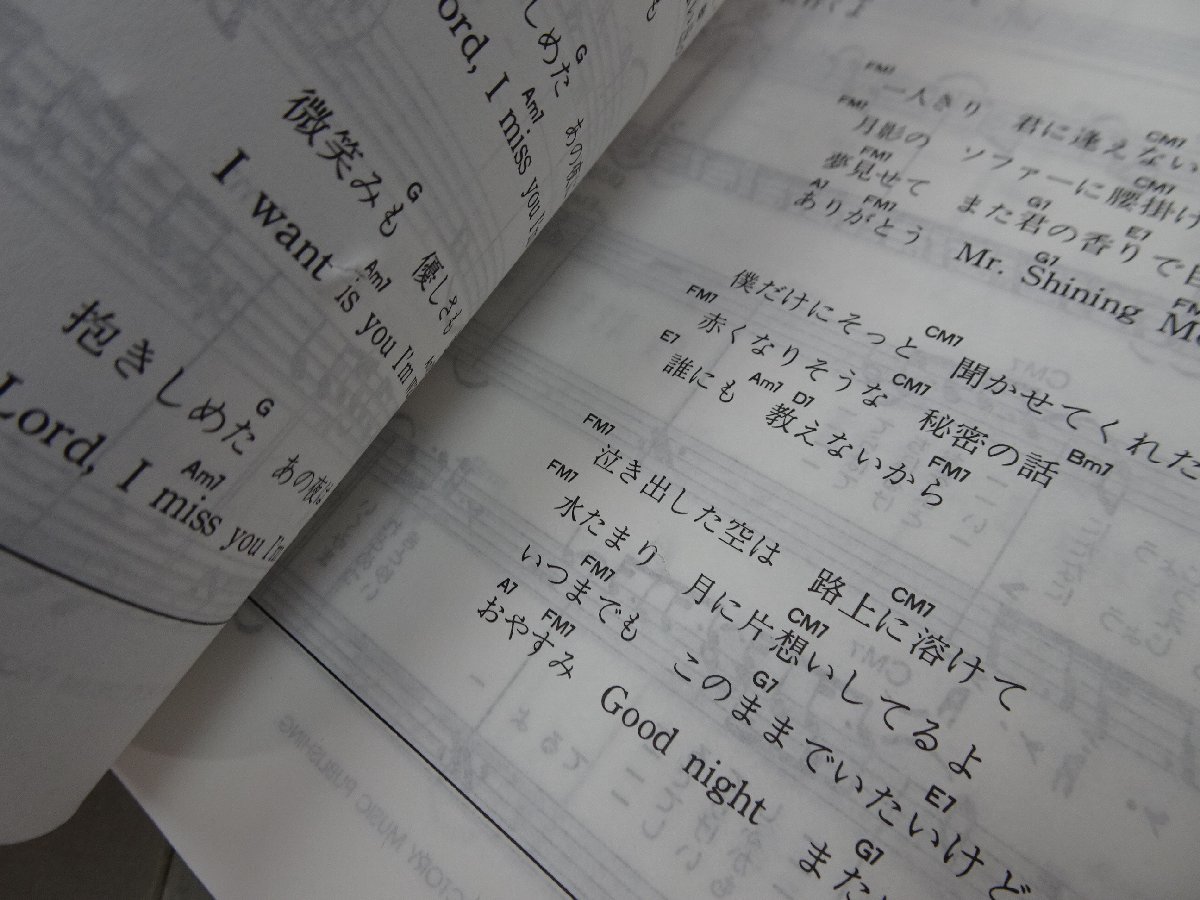 しめた
G
Am7
ord, I miss you I'm
微笑みも 優しさも
G
Am7
I want is you I'm
抱きしめた あの夜
G
Am7
Lord, I miss you I'm
FM7
一人きり 君に逢えない
FM7 CM7
月影の ソファーに腰掛け
FM7 CM7
夢見せて また君の香りで目
A7 FM7 G7 E7
ありがとう Mr. Shining
G7 FM7
僕だけにそっと 聞かせてくれた
FM7 CM7
赤くなりそうな 秘密の話
E7 CM7 Bm7
誰にも 教えないから
Am7 D7 FM7
FM7
泣き出した空は 路上に溶けて
FM7 CM7
水たまり 月に片想いしてるよ
FM7 CM7
いつまでも このままでいたいけど
A7 FM7 G7 E7
おやすみ Good night また
G7